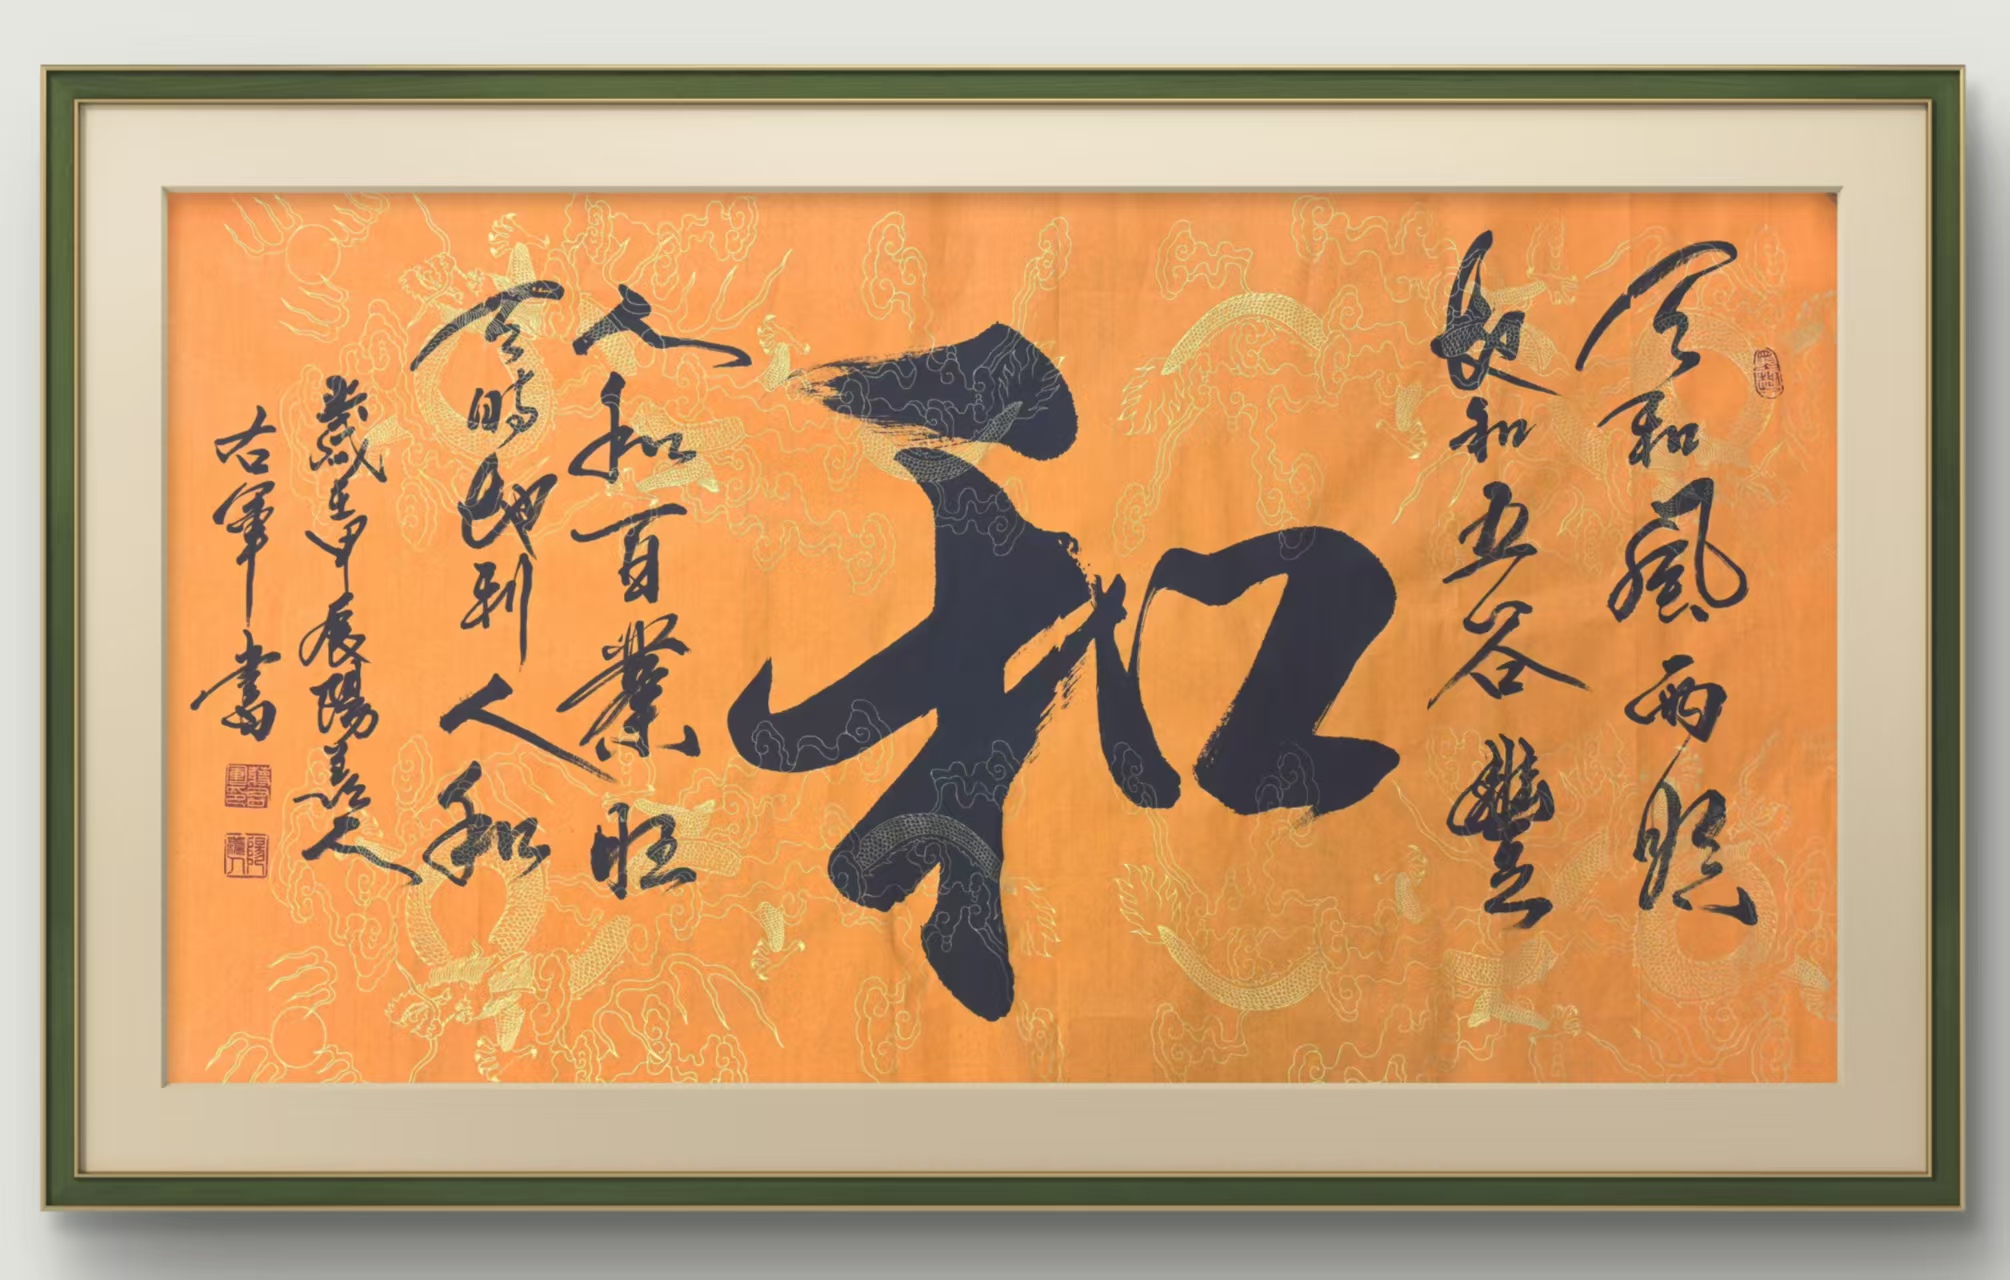 天和風雨順
地和五谷豐
和
人和百業旺
天時地利人和
歲在甲辰陽羨人
右軍書